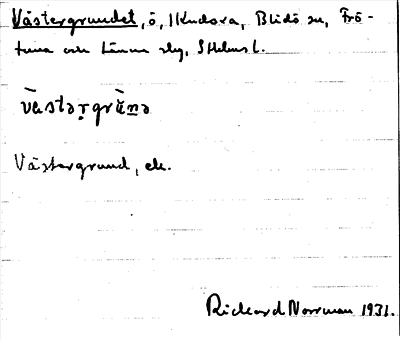 Västergrundet, ö, Blidö sn, Frö-
tuna och Länna slg, Sthlms l.
västərgrŭnə
Västergrund, ek.
Rickard Norrman 1931.